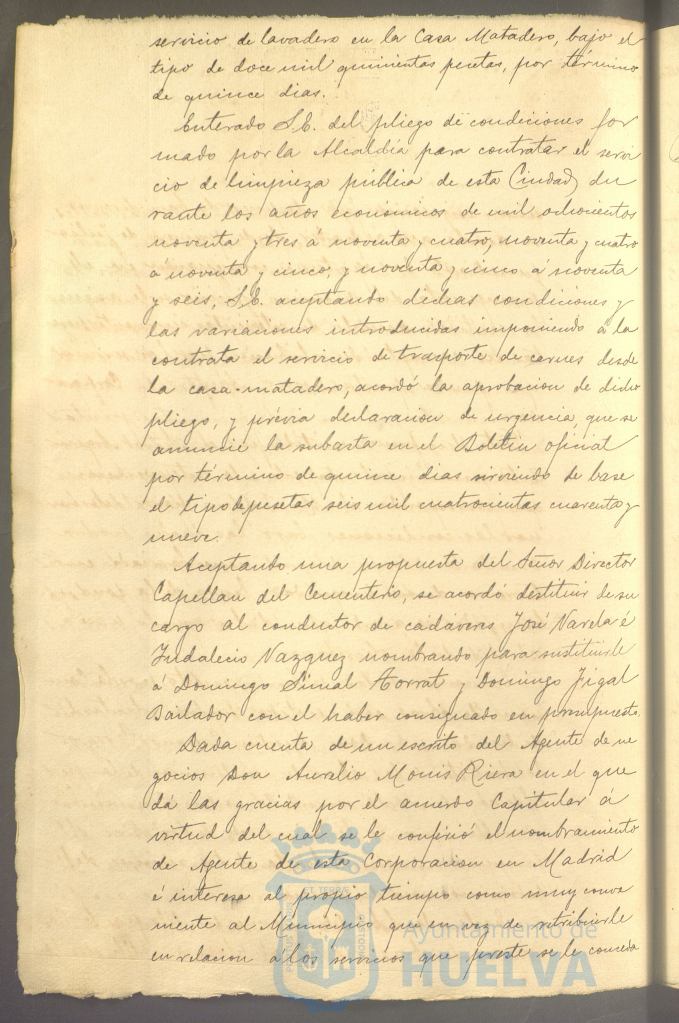 servicio de lavadero en la Casa Matadero, bajo el
tipo de doce mil quinientas pesetas, por término
de quince dias.
Enterado S.E. del pliego de condiciones for
mado por la Alcaldía para contratar el servi
cio de limpieza pública de esta Ciudad du
rante los años económicos de mil ochocientos
noventa y tres á noventa y cuatro, noventa y cuatro
a noventa y cinco, y noventa y cinco á noventa
y seis, S.E. aceptando dichas condiciones y
las variaciones introducidas imponiendo á la
contrata el servicio de trasporte de carnes desde
la casa-matadero, acordó la aprobacion de dicho
pliego, y prévia declaracion de urgencia, que se
anuncie la subasta en el Boletin oficial
por término de quince dias sirviendo de base
el tipo de pesetas seis mil cuatrocientas cuarenta y
nueve.
Aceptando una propuesta del Señor Director
Capellan del Cementerio, se acordó destituir de su
cargo al conductor de cadáveres José Varela é
Indalecio Vazquez nombrando para sustituirle
á Domingo Simal Torrat y Domingo Jigal
Bailador con el haber consignado en presupuesto.
Dada cuenta de un escrito del Agente de ne
gocios Don Aurelio Monis Riera en el que
dá las gracias por el acuerdo Capitular á
virtud del cual se le confirió el nombramiento
de Agente de esta Corporacion en Madrid
é interesa al propio tiempo como muy conve
niente al Municipio que en vez de retribuirle
en relacion á los servicios que preste se le conceda
Ayuntamiento de
HUELVA